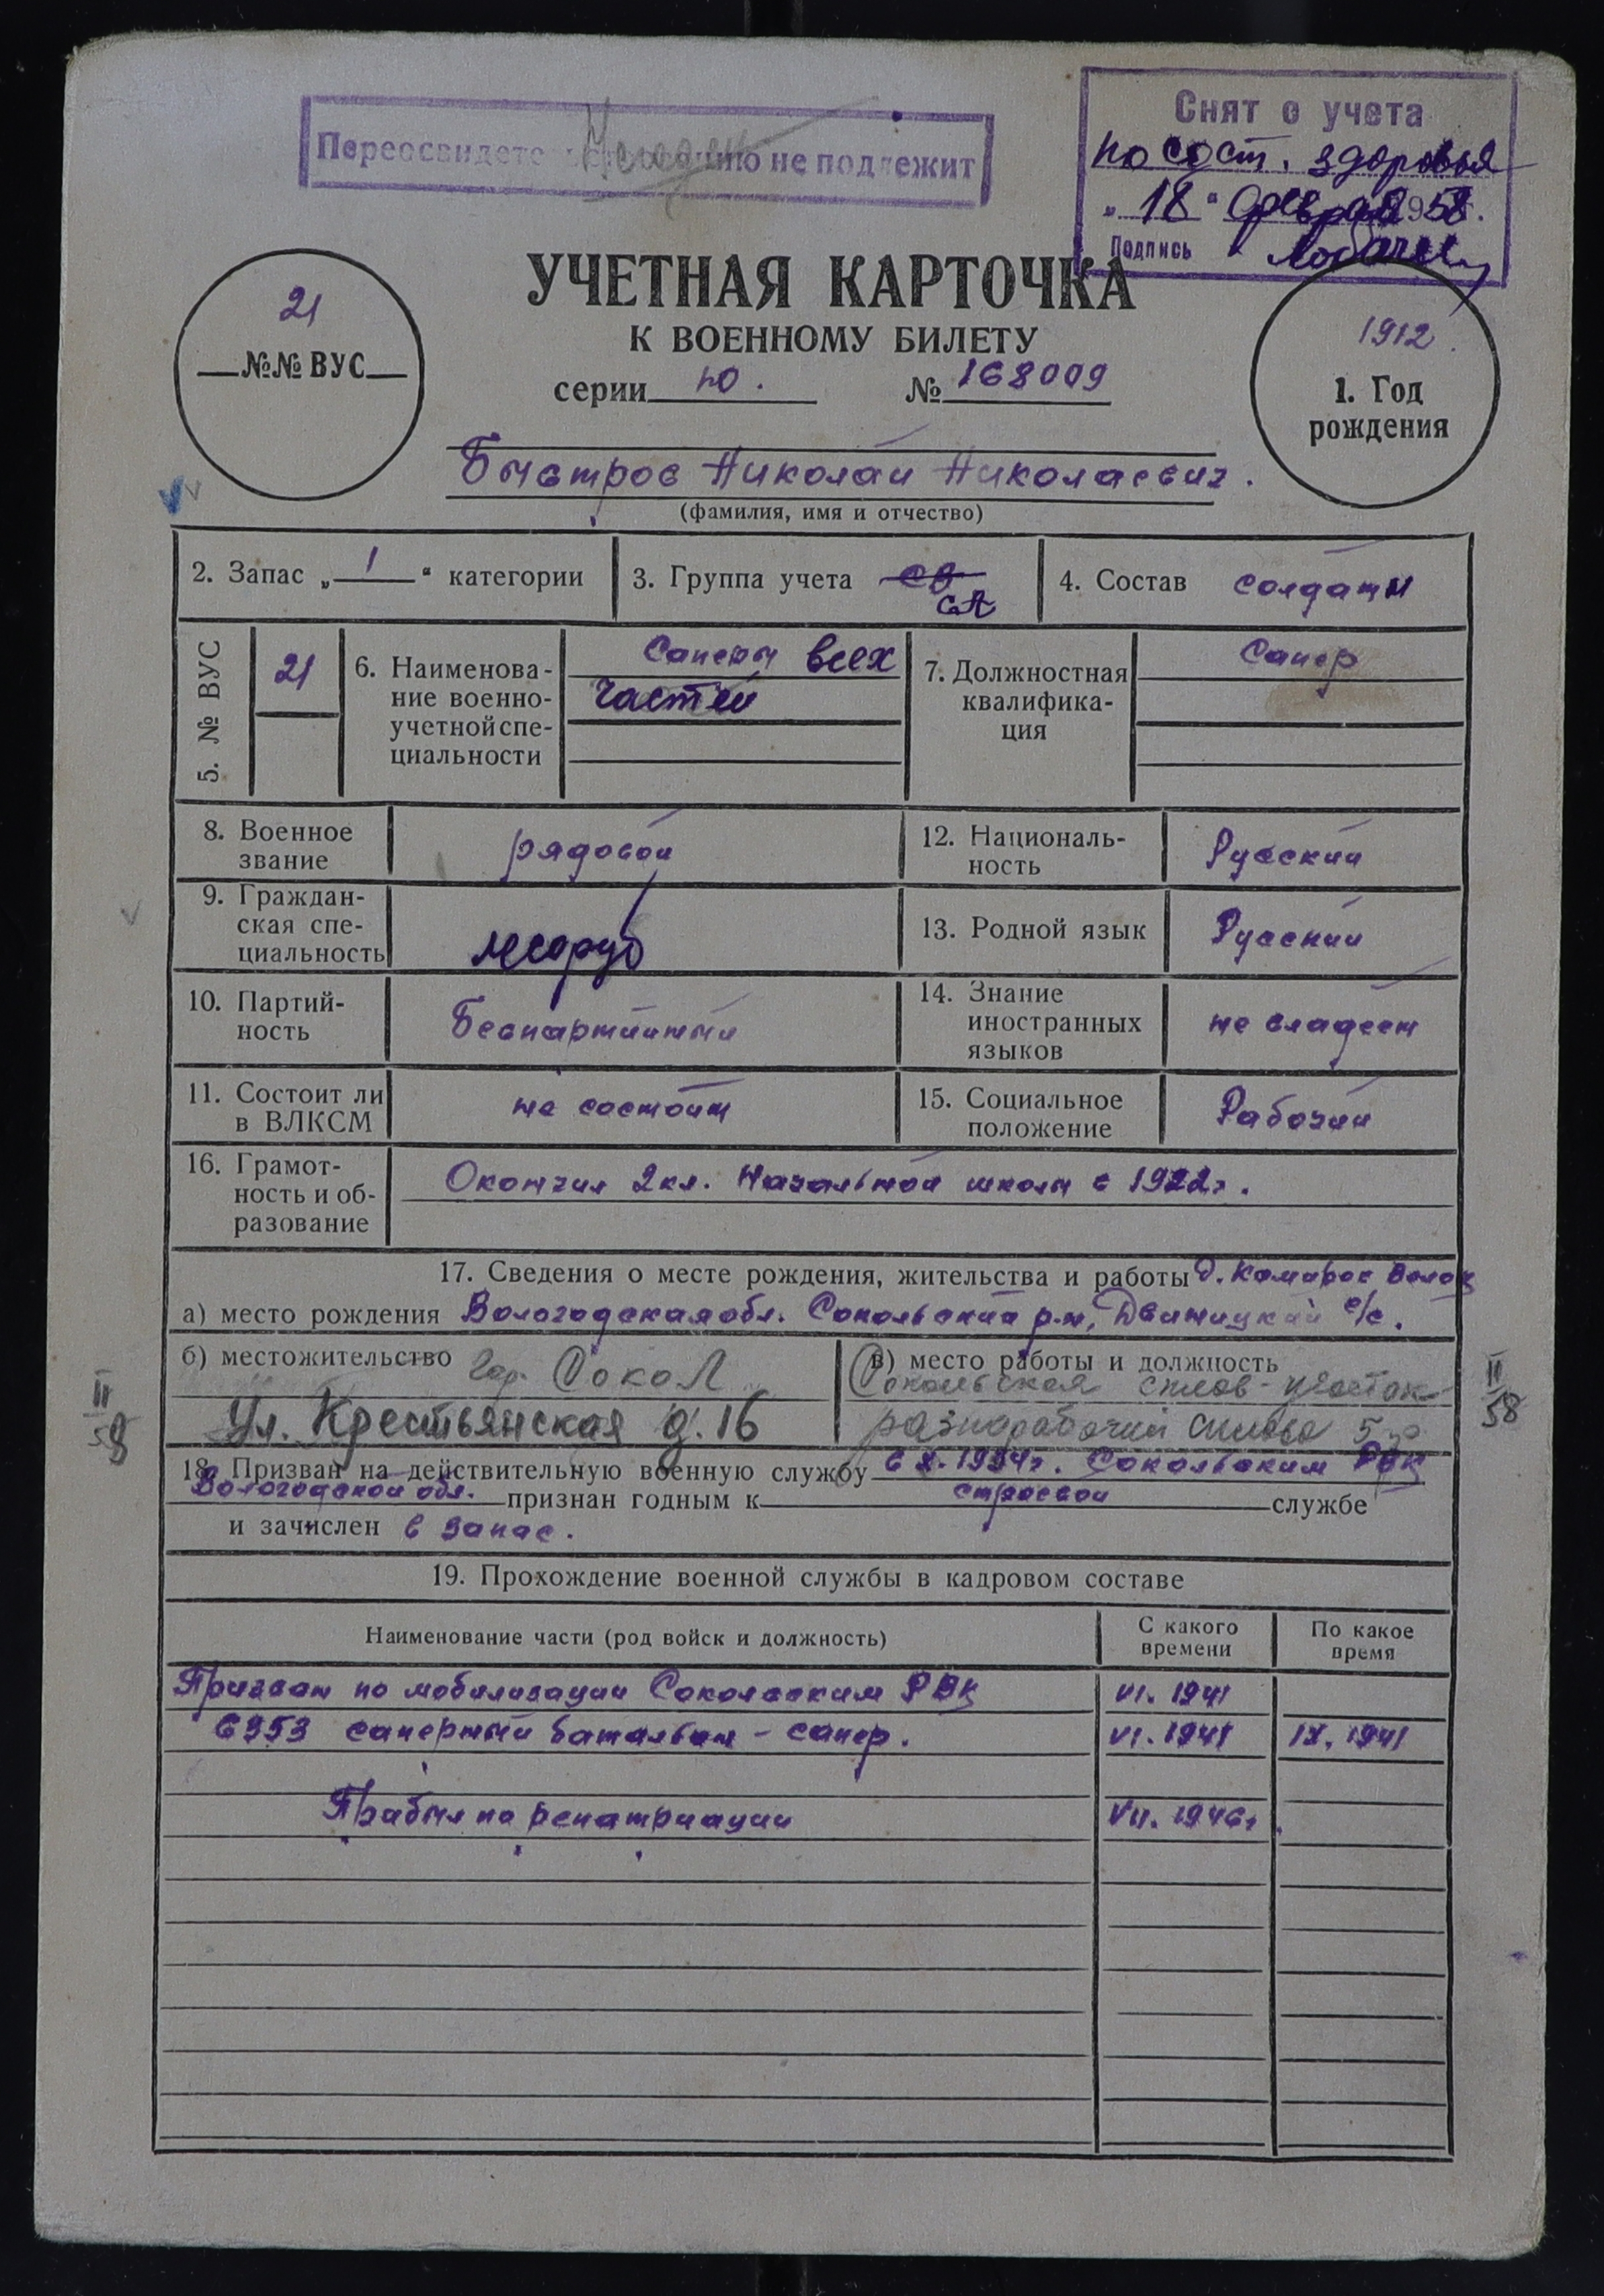 Переосвидетельствованию не подлежит
Снят с учета
по сост. здоровья
„18“ февраля 1958.
Подпись
УЧЕТНАЯ КАРТОЧКА
К ВОЕННОМУ БИЛЕТУ
серии НО. № 168009
21
№№ ВУС
1912.
1. Год
рождения
Быстров Николай Николаевич.
(фамилия, имя и отчество)
2. Запас „1“ категории
3. Группа учета СВ
СА
4. Состав солдаты
5. № ВУС
21
6. Наименова-
ние военно-
учетной спе-
циальности
Саперы всех
частей
7. Должностная
квалифика-
ция
Сапер
8. Военное
звание
рядовой
12. Националь-
ность
Русский
9. Граждан-
ская спе-
циальность
лесоруб
13. Родной язык
Русский
10. Партий-
ность
Беспартийный
14. Знание
иностранных
языков
не владеет
11. Состоит ли
в ВЛКСМ
не состоит
15. Социальное
положение
Рабочий
16. Грамот-
ность и об-
разование
Окончил 2 кл. Начальной школы в 1922г.
17. Сведения о месте рождения, жительства и работы д. Комаров Волок
а) место рождения Вологодская обл. Сокольский р-н, Двиницкий с/с.
б) местожительство гор. Сокол
ул. Крестьянская д. 16
в) место работы и должность
Сокольская сплав-участок
разнорабочий сплава
II
58
II
58
18. Призван на действительную военную службу в X. 1934г. Сокольским РВК
Вологодской обл. признан годным к строевой службе
и зачислен в запас.
19. Прохождение военной службы в кадровом составе
Наименование части (род войск и должность)
С какого
времени
По какое
время
Призван по мобилизации Сокольским РВК VI. 1941
6353 саперный батальон - сапер. VI. 1941 IX. 1941
Прибыл по репатриации VII. 1946г.